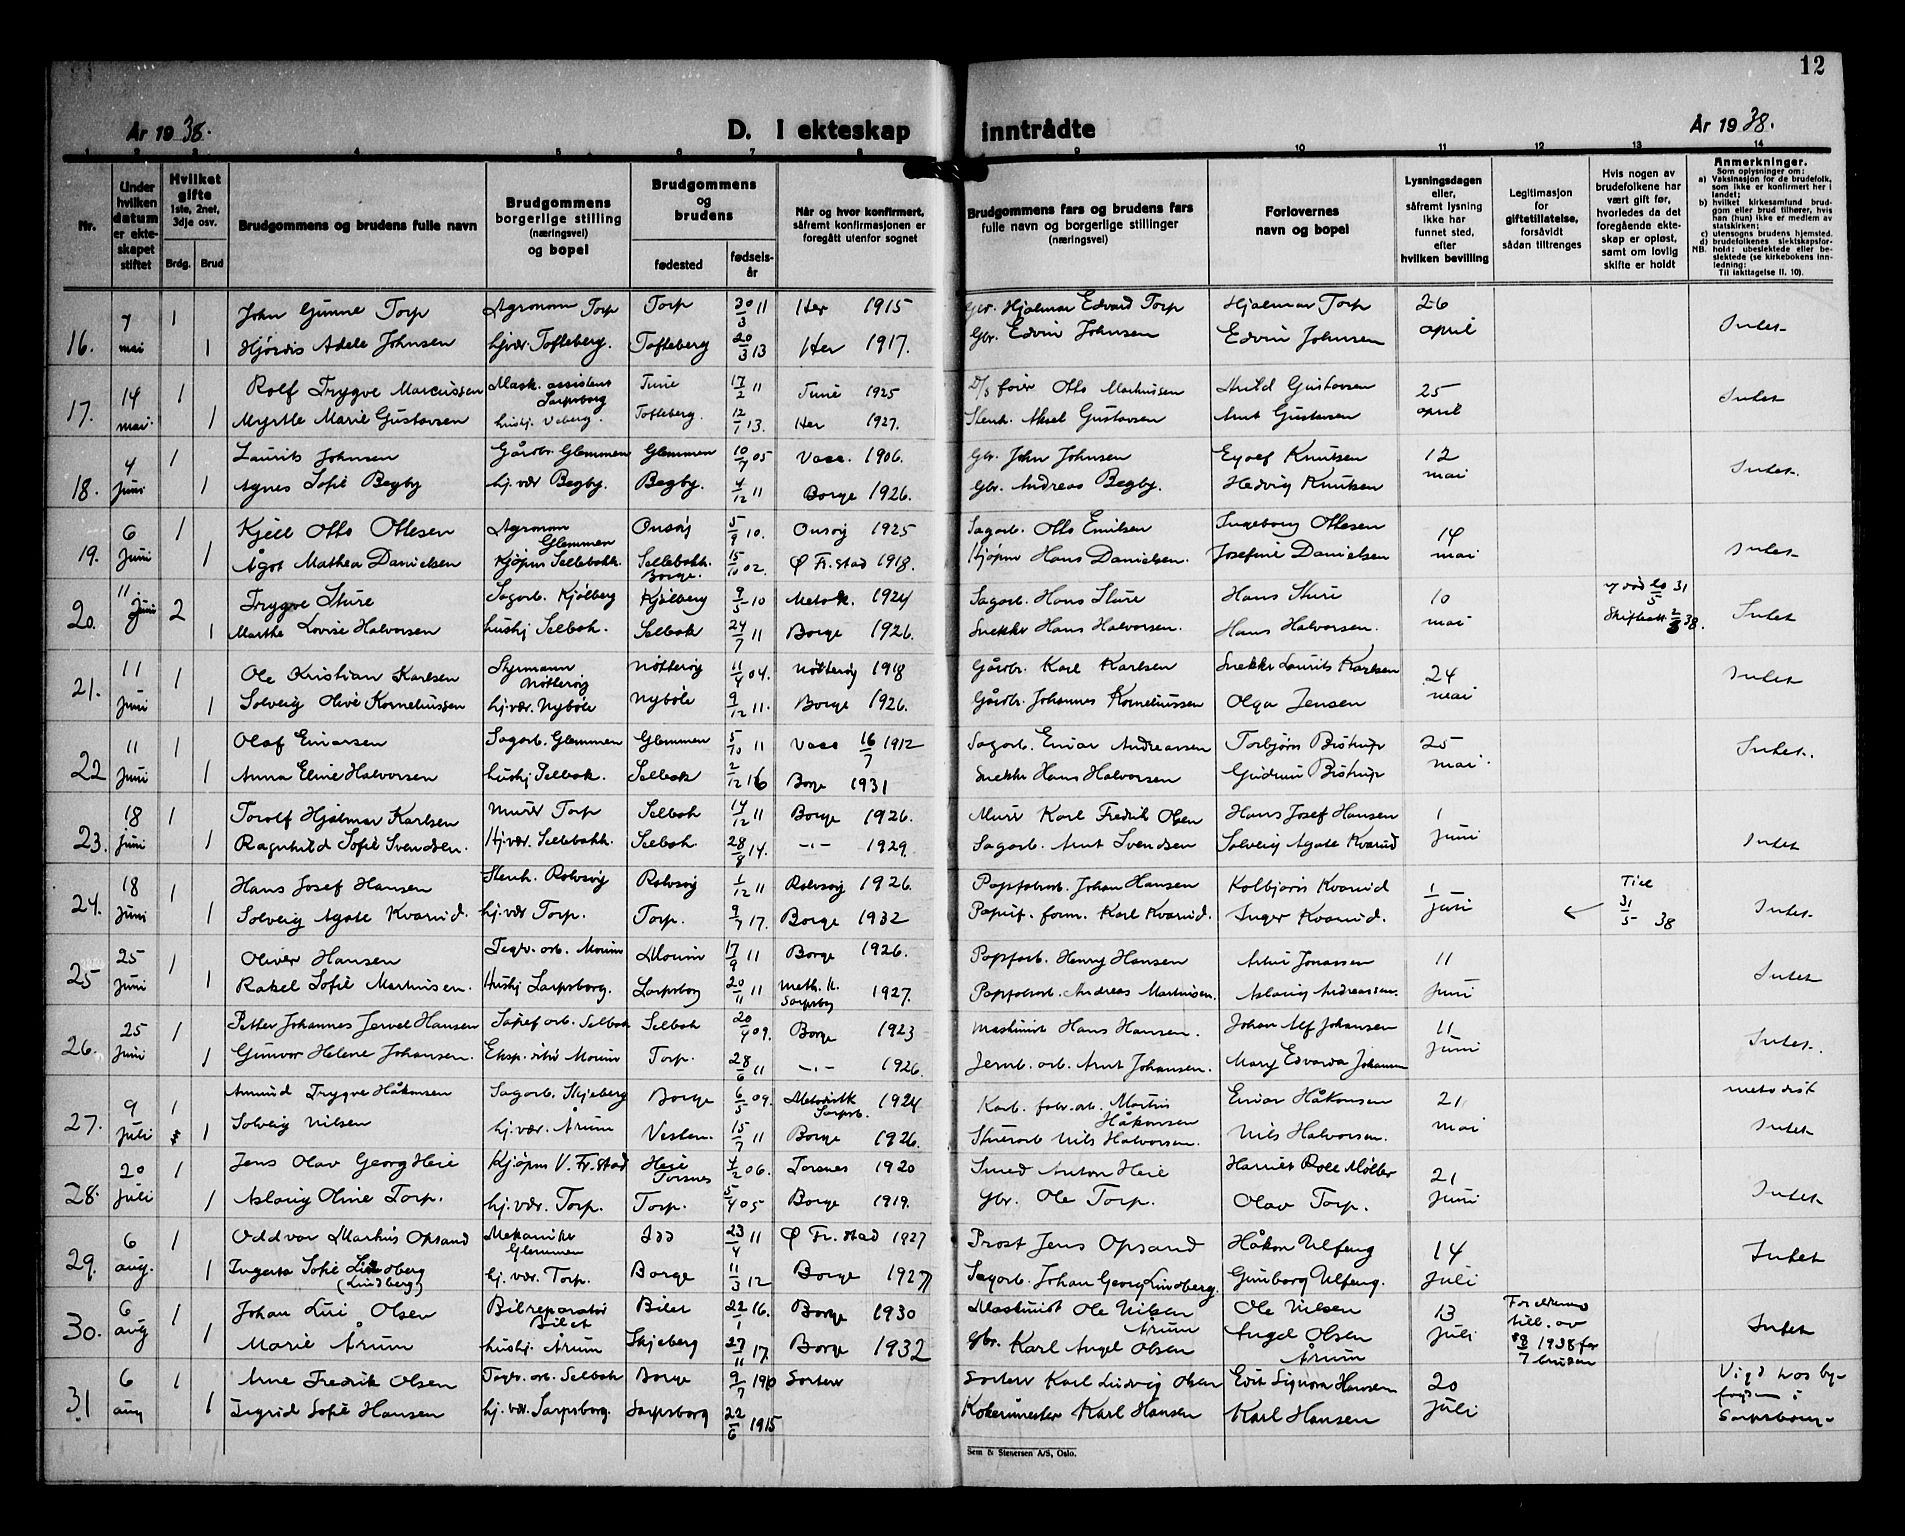 12
År 1938.
D. I ekteskap inntrådte
År 1938.
1 2 3 4 5 6 7 8 9 10 11 12 13 14
Nr.
Under hvilken datum er ekteskapet stiftet
Hvilket gifte 1ste, 2net, 3dje osv.
Brdg. Brud
Brudgommens og brudens fulle navn
Brudgommens borgerlige stilling (næringsvei) og bopel
Brudgommens og brudens
fødested fødselsår
Når og hvor konfirmert, såfremt konfirmasjonen er foregått utenfor sognet
Brudgommens fars og brudens fars fulle navn og borgerlige stillinger (næringsvei)
Forlovernes navn og bopel
Lysningsdagen eller, såfremt lysning ikke har funnet sted, efter hvilken bevilling
Legitimasjon for giftetillatelse, forsåvidt sådan tiltrenges
Hvis nogen av brudefolkene har vært gift før, hvorledes da det foregående ekteskap er opløst, samt om lovlig skifte er holdt
Anmerkninger.
Som oplysninger om:
a) Vaksinasjon for de brudefolk, som ikke er konfirmert her i landet;
b) hvilket kirkesamfund brudgom eller brud tilhører, hvis han (hun) ikke er medlem av statskirken;
c) utensogns brudens hjemsted.
d) brudefolkenes slektskapsforhold: ubeslektede eller beslektede (se kirkebokens innledning:
NB. Til iakttagelse II. 10).
16. 7 mai 1 John Gunne Torp Agronom Torp Torp 30/3 11 Her 1915 Gbr. Hjalmar Edvard Torp Hjalmar Torp 26 april Intet
1 Hjørdis Adele Johnsen hj.vær. Tofteberg. Tofteberg 20/3 13 Her 1917. Gbr. Edvin Johnsen Edvin Johnsen
17. 14 mai. 1 Rolf Trygve Marcussen Mask. assistent Sarpsborg Tune 17/2 11 Tune 1925 D/s fører Otto Markussen Arild Gustavsen 25 april Intet
1 Myrtle Marie Gustavsen hushj. Veberg. Tofteberg. 12/1 13. Her 1927. Stenh. Aksel Gustavsen Arnt Gustavsen
18. 4 Juni 1 Laurits Johnsen Gårdbr. Glemmen Glemmen 10/7 05 Vase. 1906. Gbr. John Johnsen Eyolf Knutsen 12 mai Intet.
1 Agnes Sofie Begby hj. vær Begby. Begby. 4/12 11 Borge 1926. Gbr. Andreas Begby. Hedvig Knutsen
19. 6 Juni 1 Kjell Otto Ottesen Agronom Glemmen Onsøy 5/9 10. Onsøy 1925 Sagarb. Otto Emilsen Ingeborg Ottesen 14 mai Intet
1 Ågot Mathea Danielsen Kjøpm Sellebakk. Sellebakk. Borge. 15/10 02. Ø Fr.stad 1918. Kjøpm Hans Danielsen. Josefine Danielsen
20. 11. Juni 2 Trygve Sture Sagarb. Kjølberg Kjølberg 9/5 10 Metodk. 1924 Sagarb. Hans Sture Hans Sture 10 mai 20/5 31 Skifteatt. 38. Intet
1 Marthe Lovise Halvorsen hushj Selbak. Selbak 24/7 11 Borge 1926. Snekker Hans Halvorsen. Hans Halvorsen.
21. 11 Juni 1 Ole Kristian Karlsen Styrmann Nøtterøy Nøtterøy 11/4 04. Nøtterøy 1918 Gårdbr. Karl Karlsen Snekker Laurits Karlsen 24 mai Intet
1 Solveig Olive Korneliussen hj.vær. Nybøle Nybøle 9/12 11. Borge 1926. Gårdbr. Johannes Korneliussen Olga Jensen
22 11 Juni 1 Olaf Einarsen Sagarb. Glemmen Glemmen 5/10 11 Vase 16/7 1912 Sagarb. Einar Andreassen Torbjørn Bistrup 25 mai. Intet.
1 Anna Eline Halvorsen hushj Selbak. Selbak 2/12 16 Borge 1931 Snekker Hans Halvorsen Gudrun Bistrup
23. 18 Juni 1 Torolf Hjalmar Karlsen Murer Torp Selbak 14/12 11 Borge 1926. Murer Karl Fredrik Olsen Hans Josef Hansen 1 Juni Intet
1 Ragnhild Sofie Svendsen. Hj.vær. Sellebakk. Selbak. 28/8 14. -"- 1929. Sagarb. Arnt Svendsen Solveig Agate Kvarud
24. 18 Juni 1 Hans Josef Hansen Stenh. Rolvsøy Rolvsøy 1/12 11 Rolvsøy 1926. Papfabarb. Johan Hansen Kolbjørn Kvarud 1/juni Till 31/5 38 Intet.
1 Solveig Agate Kvarud. hj. vær Torp. Torp. 9/7 17. Borge 1932 Papirf. form. Karl Kvarud. Inger Kvarud.
25 25 Juni 1 Oliver Hansen Teglv. arb. Moum Moum 17/9 11 Borge 1926. Papfarb. Henry Hansen Artur Jonassen 11 Juni Intet
1 Rakel Sofie Martinsen. Hushj Sarpsborg. Sarpsborg 20/11 11 Meth. k. Sarpsbg 1927. Papfabarb. Andreas Martinsen. Aslaug Andreassen.
26. 25 Juni 1 Petter Johannes Jervel Hansen Sapef arb. Selbak Selbak 20/4 09. Borge 1923 Maskinist Hans Hansen. Johan Alf Johansen 11 Juni Intet.
1 Gunvor Helene Johansen. Eksp. ditri Moum Torp. 28/6 11 -"- 1926. Jernb. arb. Arnt Johansen. Mary Edvarda Johansen
27. 9 Juli 1 Amund Trygve Håkonsen Sagarb. Skjeberg Borge 6/5 09. Metodistk Sarpsb. 1924 Karb. fabr.arb. Martin Håkonsen Einar Håkonsen 21 mai metodist
1 Solveig Nilsen hj. vær. Årum Vesten. 15/7 11 Borge 1926. Stuerarb Nils Halvorsen. Nils Halvorsen. Intet
28. 20 Juli 1 Jens Olav Georg Heie Kjøpm V. Fr.stad Heie Torsnes 4/2 06. Torsnes 1920 Smed Anton Heie Harriet Roll Møller 21 Juni Intet
1 Aslaug Oline Torp. hj. vær. Torp. Torp. 5/4 05 Borge 1919. Gbr. Ole Torp. Olav Torp.
29. 6 aug. 1 Oddvar Markus Opsand Mekaniker Glemmen Idd 23/4 11 Ø Fr. stad 1927 Prost Jens Opsand Håkon Ulfeng 14 Juli Intet
1 Ingerta Sofie Lindberg (Lindberg) hj. vær. Torp. Borge 11/3 12 Borge 1927 Sagarb. Johan Georg Lindberg. Gunborg Ulfeng.
30. 6 aug 1 Johan Luri Olsen Bilreparatør Bilet Bilet 22/1 16. Borge 1930 Maskinist Ole Nilsen Årum Ole Nilsen 13 Juli Foreldrenes till. av 8/7 1938 for bruden Intet
1 Marie Årum hushj. Årum Skjeberg 27/11 17. Borge 1932 Gbr. Karl Angel Olsen Angel Olsen Årum
31 6 aug 1 Arne Fredrik Olsen Teglv. arb. Selbak Borge 9/7 1910 Sorterer Sorterer Karl Ludvig Olsen Edit Signora Hansen 20 Juli Vigd hos byfogden i Sarpsborg
1 Ingrid Sofie Hansen hj. vær. Sarpsborg. Sarpsborg 22/6 1915 Kokerimester Karl Hansen Karl Hansen
Sem & Stenersen A/S, Oslo.